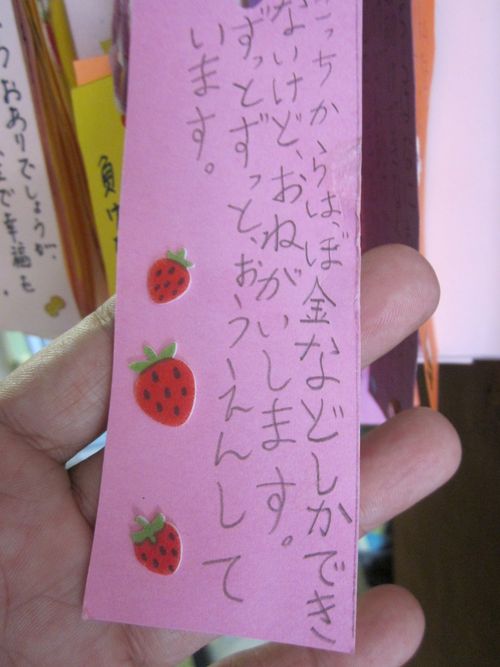 こっちからは、ぼ金などしかでき
ないけど、おねがいします。
ずっとずっと、おうえんして
います。
負け
つおありでしょうが、
で幸福を